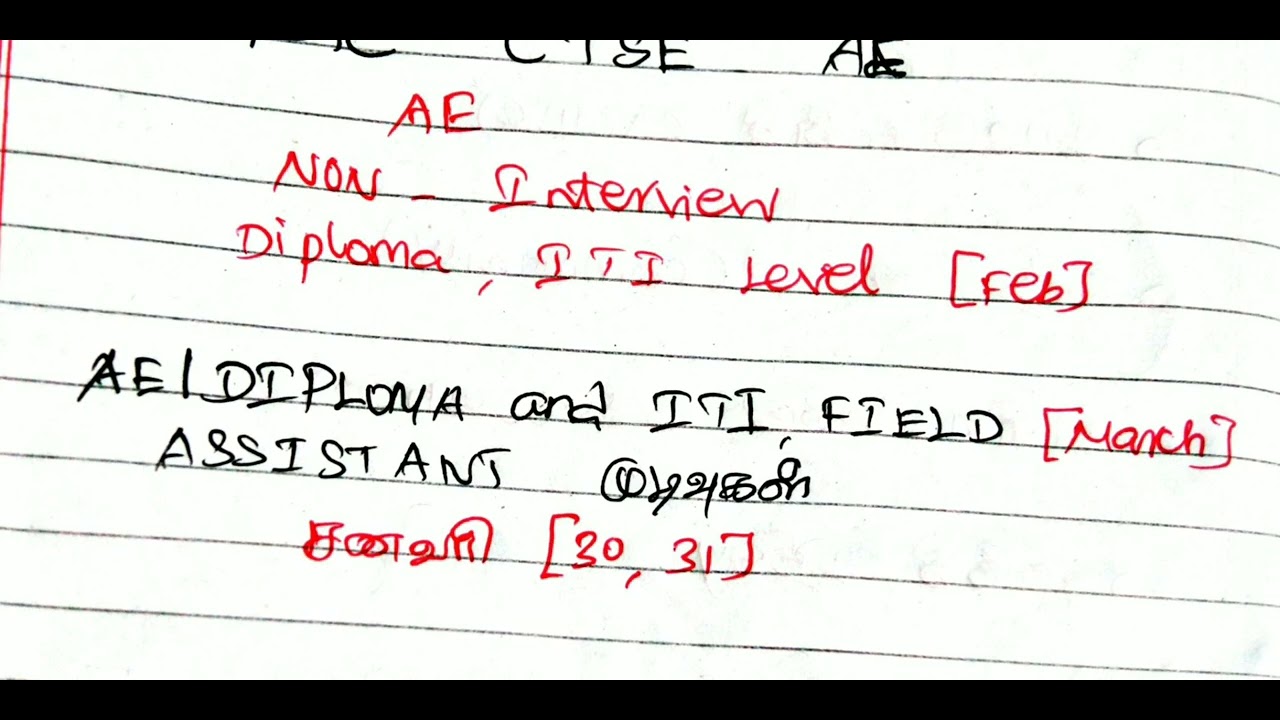 CTSE AE
AE
NON - Interview
Diploma, ITI Level [Feb]
AE/DIPLOMA and ITI, FIELD [March]
ASSISTANT முடிவுகள்
சனவரி [30, 31]